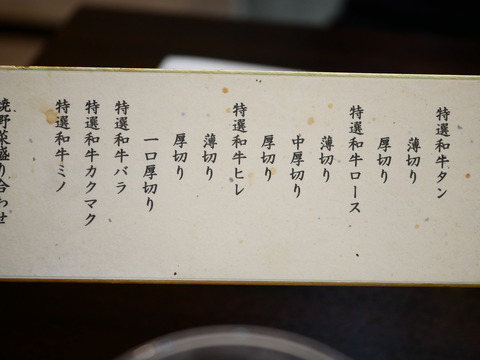 特選和牛タン
薄切り
厚切り
特選和牛ロース
薄切り
中厚切り
厚切り
特選和牛ヒレ
薄切り
厚切り
一口厚切り
特選和牛バラ
特選和牛カクマク
特選和牛ミノ
焼野菜盛り合わせ